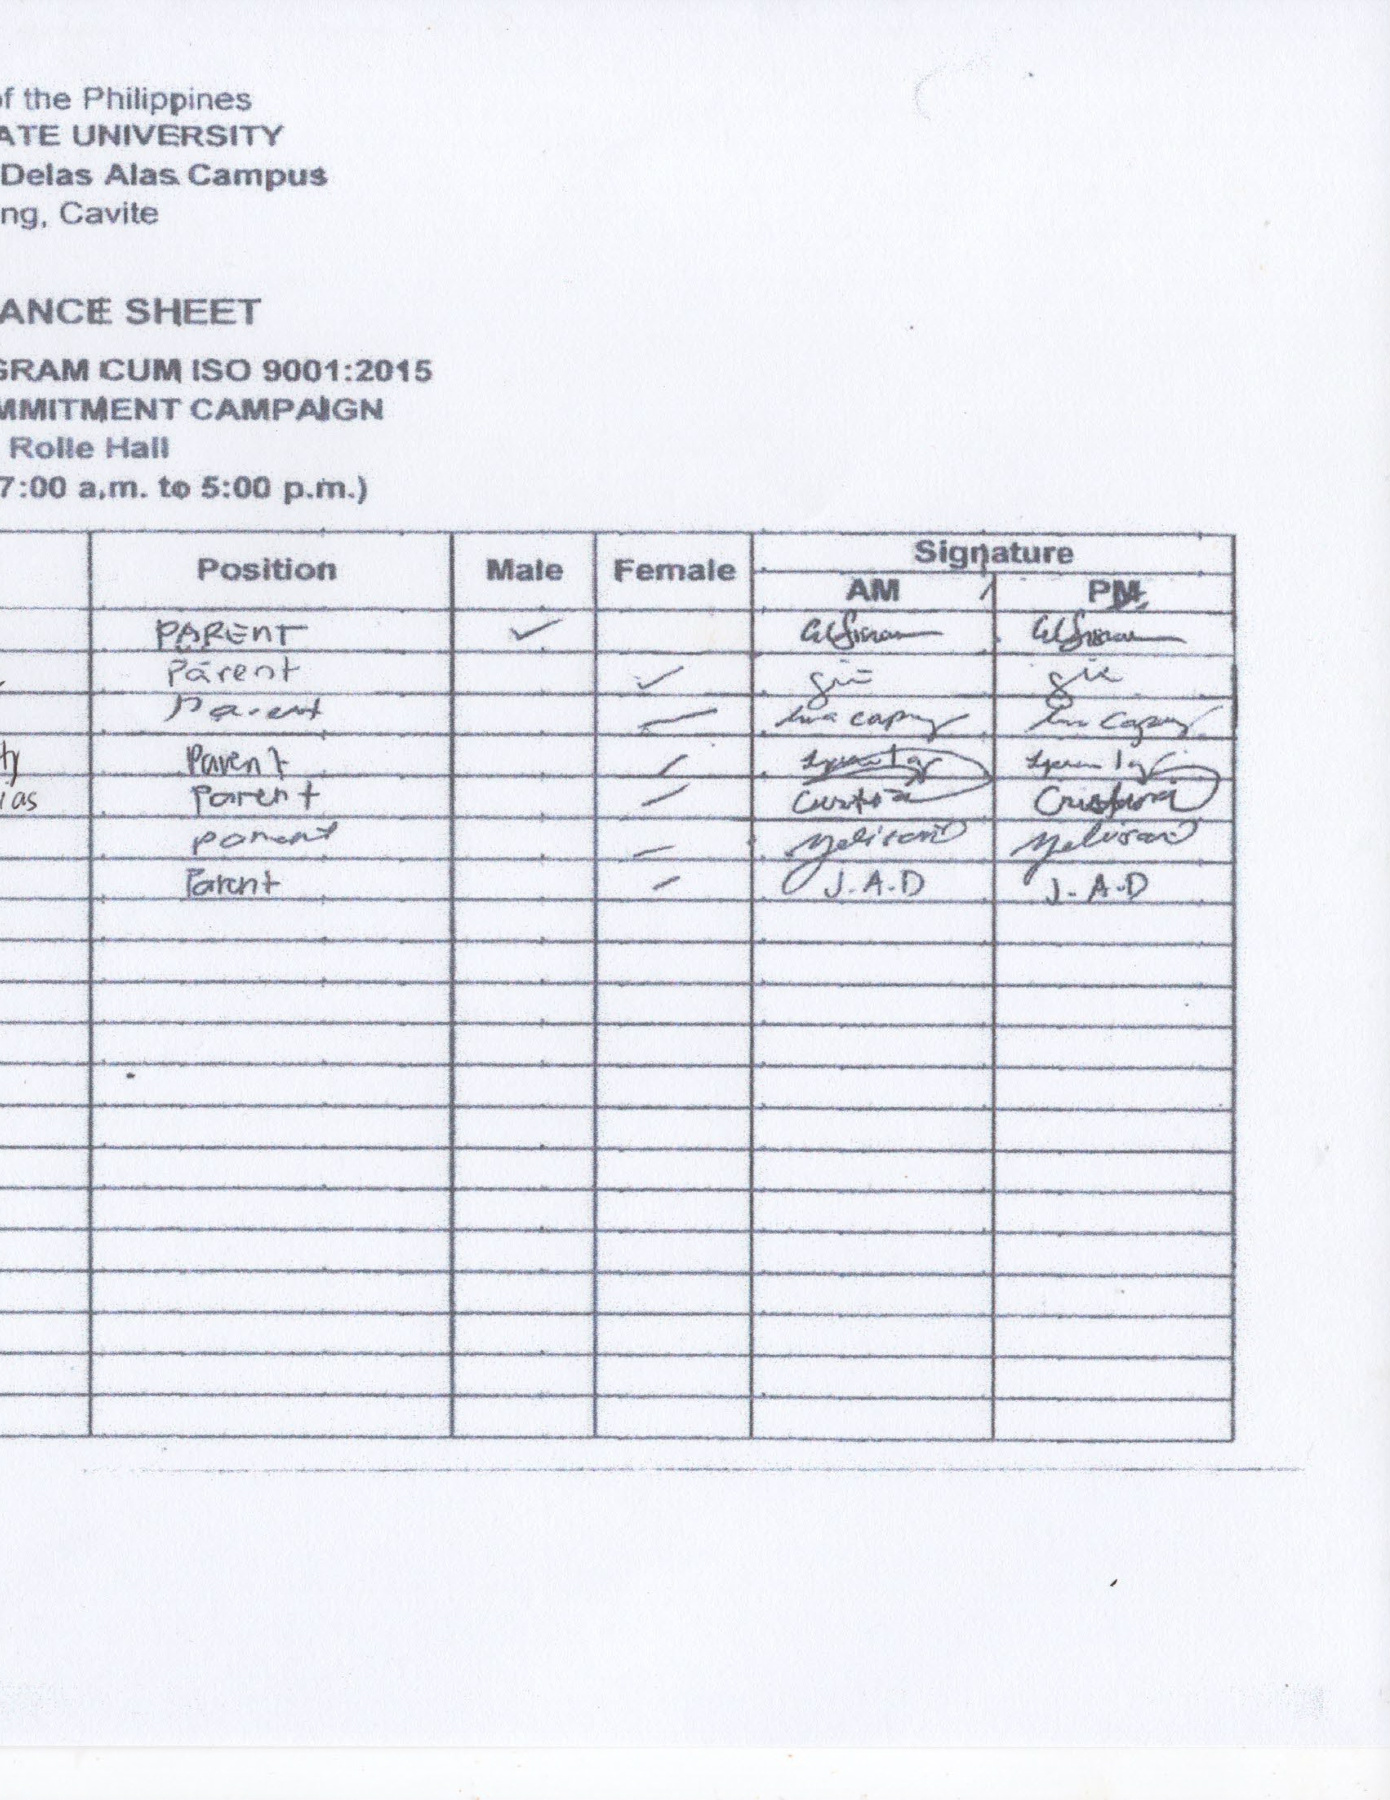 of the Philippines
ATE UNIVERSITY
Delas Alas Campus
ng, Cavite
ANCE SHEET
GRAM CUM ISO 9001:2015
MMITMENT CAMPAIGN
Rolle Hall
7:00 a.m. to 5:00 p.m.)
Position Male Female Signature
AM PM
PARENT
Parent
Parent
ty Parent
ias Parent Cristina
parent
Parent J.A.D J.A.D